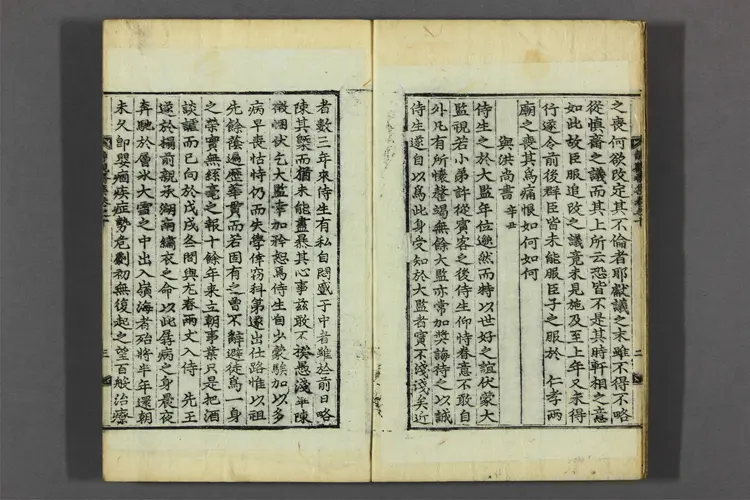 之喪何欲改定其不倫者耶獻議之末雖不得不略
從慎齋之議而其上所云恐皆不是其時軒相之意
如此故臣服追改之議竟未見施及至上年又未得
行遂令前後群臣皆未能服臣子之服於 仁孝兩
廟之喪其爲痛恨如何如何
與洪尚書 辛丑
侍生之於大監年位邈然而特以世好之誼伏蒙大
監視若小弟許從賓客之後侍生仰恃眷意不敢自
外凡有所懷罄竭無餘大監亦常加奬誨待之以誠
侍生遂自以爲此身受知於大監者實不淺淺矣近
者數三年來侍生有私自悶蹙于中者雖於前日略
陳其槩而猶未能盡暴其心事玆敢不揆愚淺平陳
微悃伏乞大監事加矜恕焉侍生自少蒙騃加以多
病早喪怙恃仍而失學倖竊科第遂出仕路惟以祖
先餘蔭遍歷華貫而若固有之曾不辭避徒爲一身
之榮實無絲毫之報十餘年來立朝事業只是把酒
談謔而已向於戊戌冬間與尤春兩丈入侍 先王
遂於榻前親承湖南繡衣之命以此孱病之身晨夜
奔馳於層氷大雪之中出入嶺海者殆將半年還朝
未久卽嬰痼疾症勢危劇初無復起之望百般治療
二
三